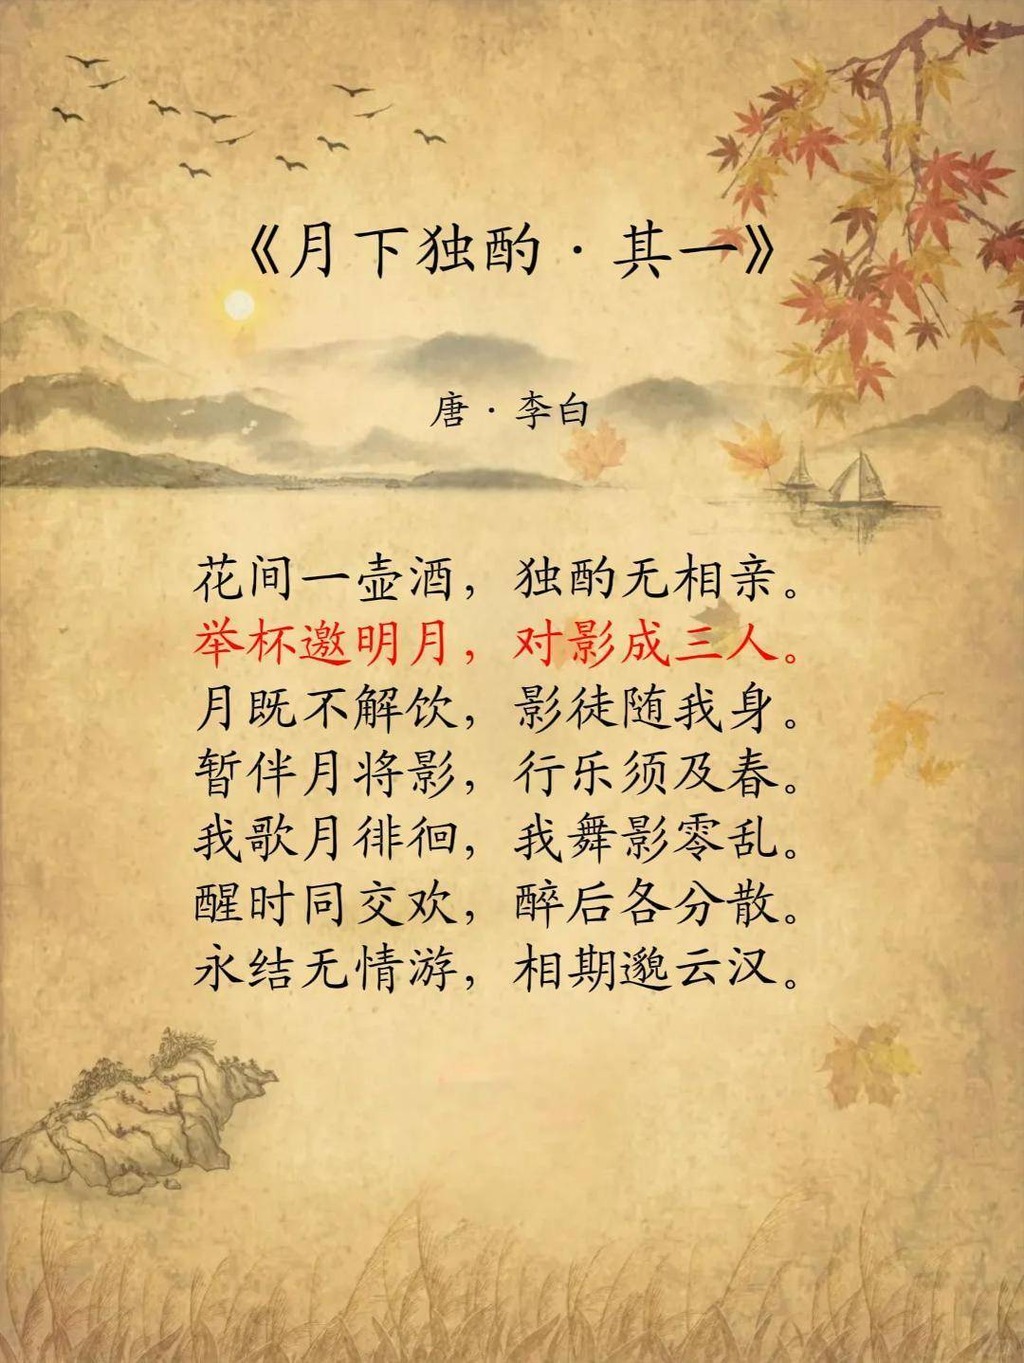 《月下独酌·其一》
唐·李白
花间一壶酒，独酌无相亲。
举杯邀明月，对影成三人。
月既不解饮，影徒随我身。
暂伴月将影，行乐须及春。
我歌月徘徊，我舞影零乱。
醒时同交欢，醉后各分散。
永结无情游，相期邈云汉。